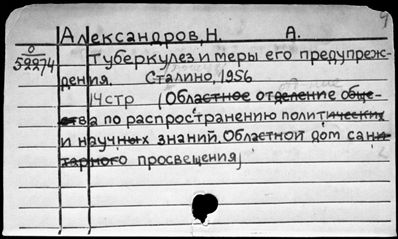 9
Александров, Н. А.
О
52274
Туберкулез и меры его предупреж-
дения. Сталино, 1956
14 стр (Областное отделение обще-
ства по распространению политических
и научных знаний. Областной дом сани-
тарного просвещения)